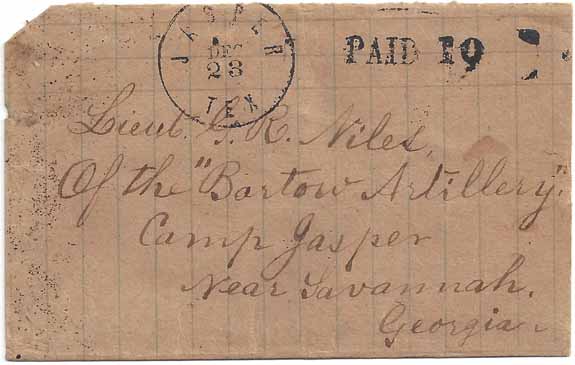 JASPER
DEC
23
TEN
PAID 10
Lieut. G. R. Niles,
Of the "Bartow Artillery".
Camp Jasper
Near Savannah.
Georgia